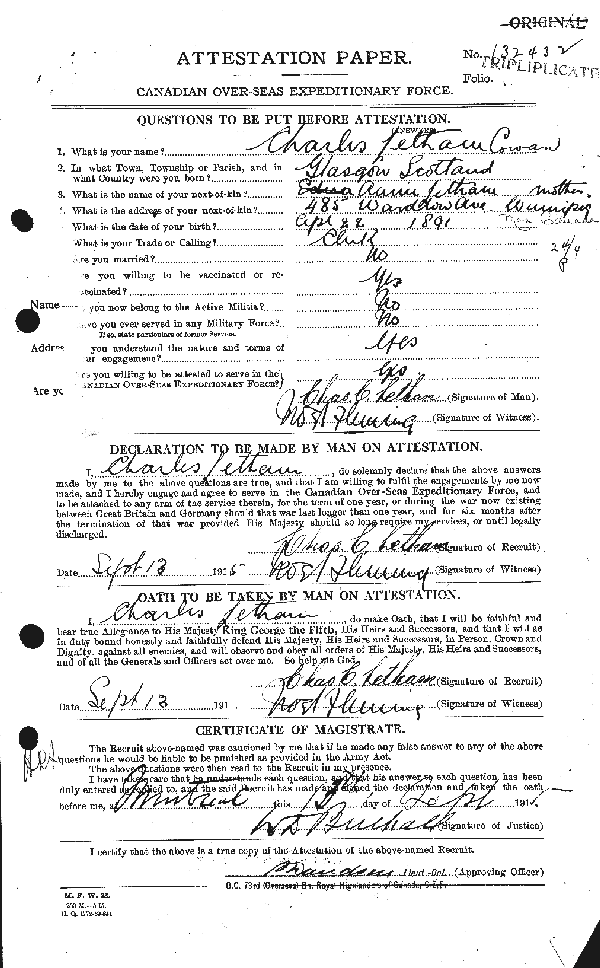 ORIGINAL
ATTESTATION PAPER.
No. 132432
TRIPLIPLICATE
Folio.
CANADIAN OVER-SEAS EXPEDITIONARY FORCE.
QUESTIONS TO BE PUT BEFORE ATTESTATION.
1. What is your name? Charles Letham Cowan
2. In what Town, Township or Parish, and in
what Country were you born? Glasgow Scotland
3. What is the name of your next-of-kin? Letham mother
4. What is the address of your next-of-kin? 485 Wardlow Ave Winnipeg
What is the date of your birth? Apl 22 1891
What is your Trade or Calling? Clerk
Are you married? No
re you willing to be vaccinated or re-
ccinated? Yes
Name
you now belong to the Active Militia? No
ve you ever served in any Military Force? No
If so, state particulars of former Service.
Addre
you understand the nature and terms of
ur engagement? Yes
re you willing to be attested to serve in the
CANADIAN OVER-SEAS EXPEDITIONARY FORCE? Yes
Are yo
Chas C. Letham (Signature of Man).
Fleming (Signature of Witness).
DECLARATION TO BE MADE BY MAN ON ATTESTATION.
I, Charles Letham, do solemnly declare that the above answers
made by me to the above questions are true, and that I am willing to fulfil the engagements by me now
made, and I hereby engage and agree to serve in the Canadian Over-Seas Expeditionary Force, and
to be attached to any arm of the service therein, for the term of one year, or during the war now existing
between Great Britain and Germany should that war last longer than one year, and for six months after
the termination of that war provided His Majesty should so long require my services, or until legally
discharged.
Chas C. Letham (Signature of Recruit)
Date Sept 13 1915 Fleming (Signature of Witness)
OATH TO BE TAKEN BY MAN ON ATTESTATION.
I, Charles Letham, do make Oath, that I will be faithful and
bear true Allegiance to His Majesty King George the Fifth, His Heirs and Successors, and that I will as
in duty bound honestly and faithfully defend His Majesty, His Heirs and Successors, in Person, Crown and
Dignity, against all enemies, and will observe and obey all orders of His Majesty, His Heirs and Successors,
and of all the Generals and Officers set over me. So help me God.
Chas C. Letham (Signature of Recruit)
Date Sept 13 191 Fleming (Signature of Witness)
CERTIFICATE OF MAGISTRATE.
The Recruit above-named was cautioned by me that if he made any false answer to any of the above
questions he would be liable to be punished as provided in the Army Act.
The above questions were then read to the Recruit in my presence.
I have taken care that he understands each question, and that his answer to each question has been
duly entered as replied to, and the said Recruit has made and signed the declaration and taken the oath
before me, at Montreal this 13 day of Sept 1915.
(Signature of Justice)
I certify that the above is a true copy of the Attestation of the above-named Recruit.
Lieut-Col. (Approving Officer)
O.C. 73rd (Overseas) Bn. Royal Highlanders of Canada, C.E.F.
M. F. W. 23.
H. Q. 1772-39-841